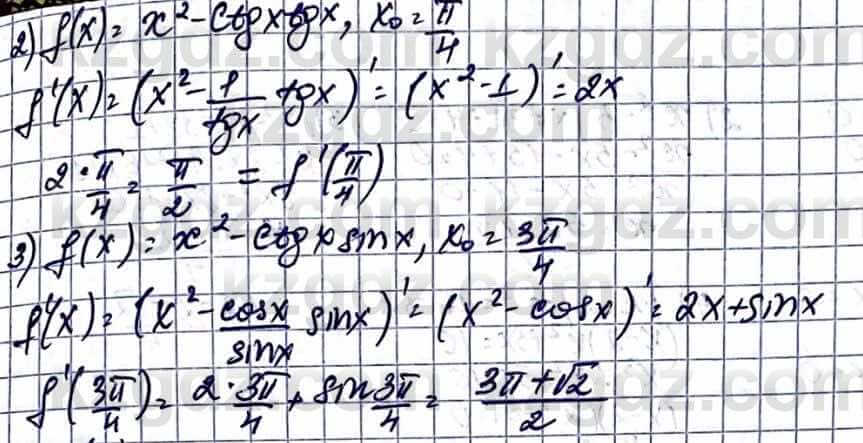 2) f(x) = x² - ctgx tgx, x₀ = π/4
f'(x) = (x² - 1/tgx tgx)' = (x² - 1)' = 2x
2 · π/4 = π/2 = f'(π/4)
3) f(x) = x² - ctgx sinx, x₀ = 3π/4
f'(x) = (x² - cosx/sinx sinx)' = (x² - cosx)' = 2x + sinx
f'(3π/4) = 2 · 3π/4 + sin 3π/4 = (3π + √2)/2